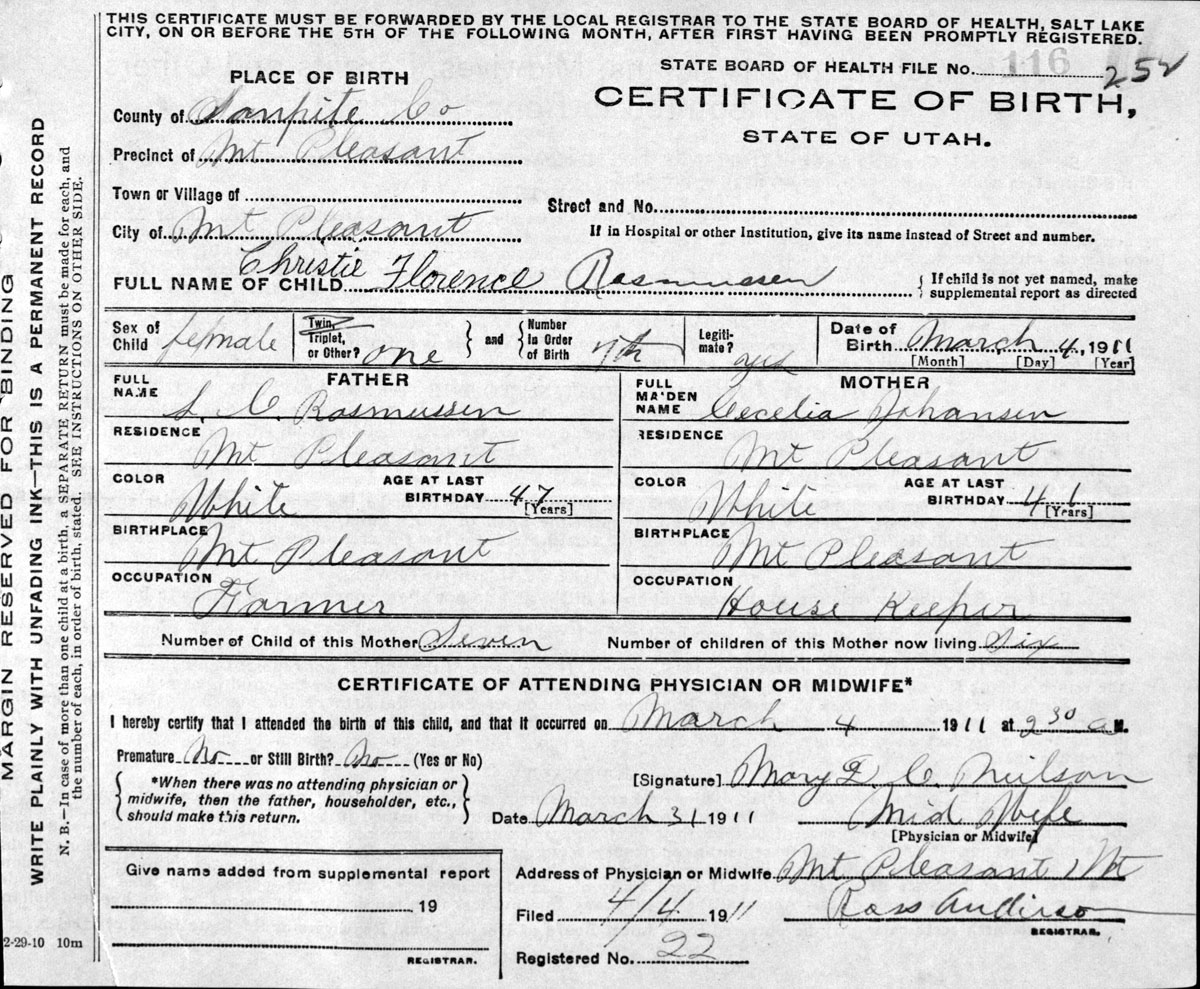 THIS CERTIFICATE MUST BE FORWARDED BY THE LOCAL REGISTRAR TO THE STATE BOARD OF HEALTH, SALT LAKE
CITY, ON OR BEFORE THE 5TH OF THE FOLLOWING MONTH, AFTER FIRST HAVING BEEN PROMPTLY REGISTERED.
STATE BOARD OF HEALTH FILE No. 116 252
PLACE OF BIRTH
CERTIFICATE OF BIRTH,
STATE OF UTAH.
County of Sanpite Co
Precinct of Mt Pleasant
Town or Village of
Street and No.
City of Mt Pleasant
If in Hospital or other Institution, give its name instead of Street and number.
FULL NAME OF CHILD Christie Florence Rasmussen
{ If child is not yet named, make
supplemental report as directed
Sex of
Child female
Twin,
Triplet,
or Other? one
} and {
Number
In Order
of Birth 7th
Legiti-
mate? yes
Date of
Birth March 4, 1911
[Month] [Day] [Year]
FATHER
FULL
NAME C. Rasmussen
RESIDENCE
Mt Pleasant
COLOR White
AGE AT LAST
BIRTHDAY 47
[Years]
BIRTHPLACE
Mt Pleasant
OCCUPATION
Farmer
MOTHER
FULL
MA'DEN
NAME Cecelia Johansen
RESIDENCE
Mt Pleasant
COLOR White
AGE AT LAST
BIRTHDAY 41
[Years]
BIRTHPLACE
Mt Pleasant
OCCUPATION
House Keeper
Number of Child of this Mother Seven Number of children of this Mother now living Six
CERTIFICATE OF ATTENDING PHYSICIAN OR MIDWIFE*
I hereby certify that I attended the birth of this child, and that it occurred on March 4 1911 at 2 30 a M.
Premature No or Still Birth? No (Yes or No)
{ *When there was no attending physician or
midwife, then the father, householder, etc.,
should make this return. }
[Signature] Mary C. Neilson
Date March 31 1911 Mid Wife
[Physician or Midwife]
Give name added from supplemental report
19
REGISTRAR.
Address of Physician or Midwife Mt Pleasant
Filed 4/4 1911 Ross Anderso
REGISTRAR.
Registered No. 22
2-29-10 10m
MARGIN RESERVED FOR BINDING
WRITE PLAINLY WITH UNFADING INK—THIS IS A PERMANENT RECORD
N. B.—In case of more than one child at a birth, a SEPARATE RETURN must be made for each, and
the number of each, in order of birth, stated. SEE INSTRUCTIONS ON OTHER SIDE.